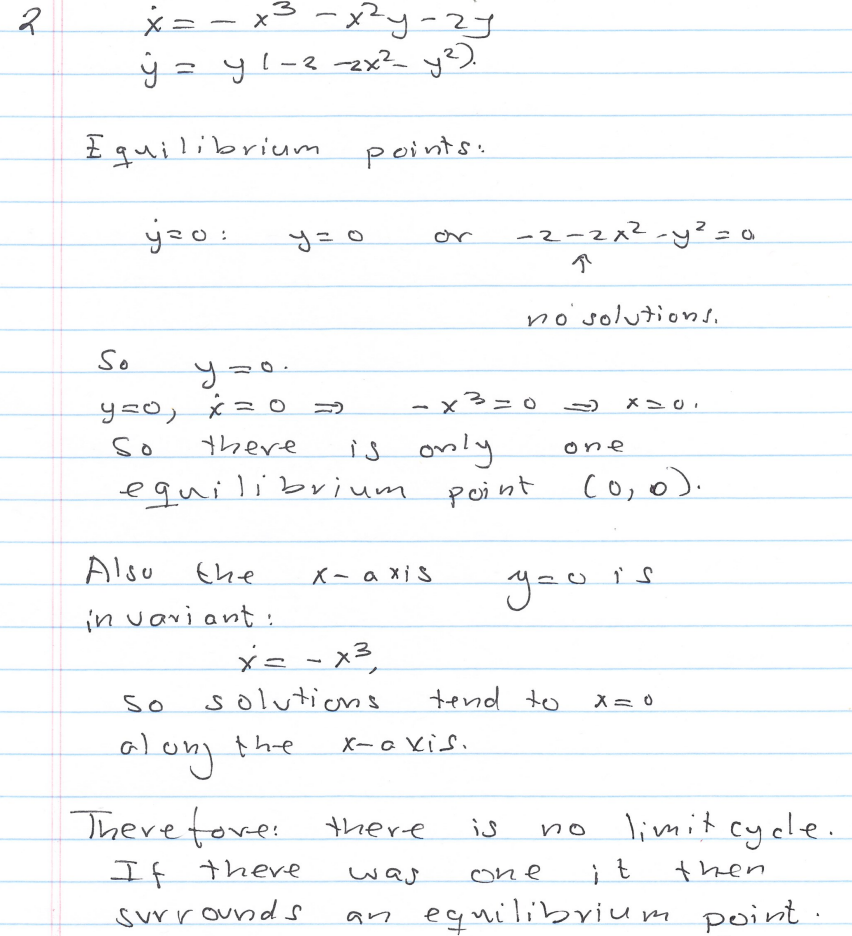 2 ẋ = - x³ - x²y - 2y
ẏ = y (-2 -2x² - y²).
Equilibrium points:
ẏ=0: y=0 or -2-2x²-y²=0
↑
no solutions.
So y=0.
y=0, ẋ=0 ⇒ -x³=0 ⇒ x=0.
So there is only one
equilibrium point (0,0).
Also the x-axis y=0 is
invariant:
ẋ = -x³,
so solutions tend to x=0
along the x-axis.
Therefore: there is no limit cycle.
If there was one it then
surrounds an equilibrium point.